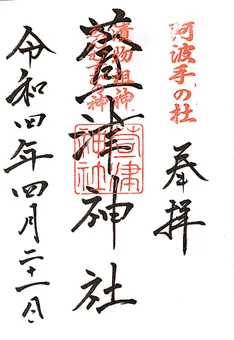 阿波手の杜
奉拝
漬物祖神
萱津神社
萱津
神社
令和四年四月二十一日